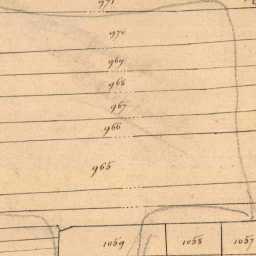 971
970
969
968
967
966
965
1059 1058 1057